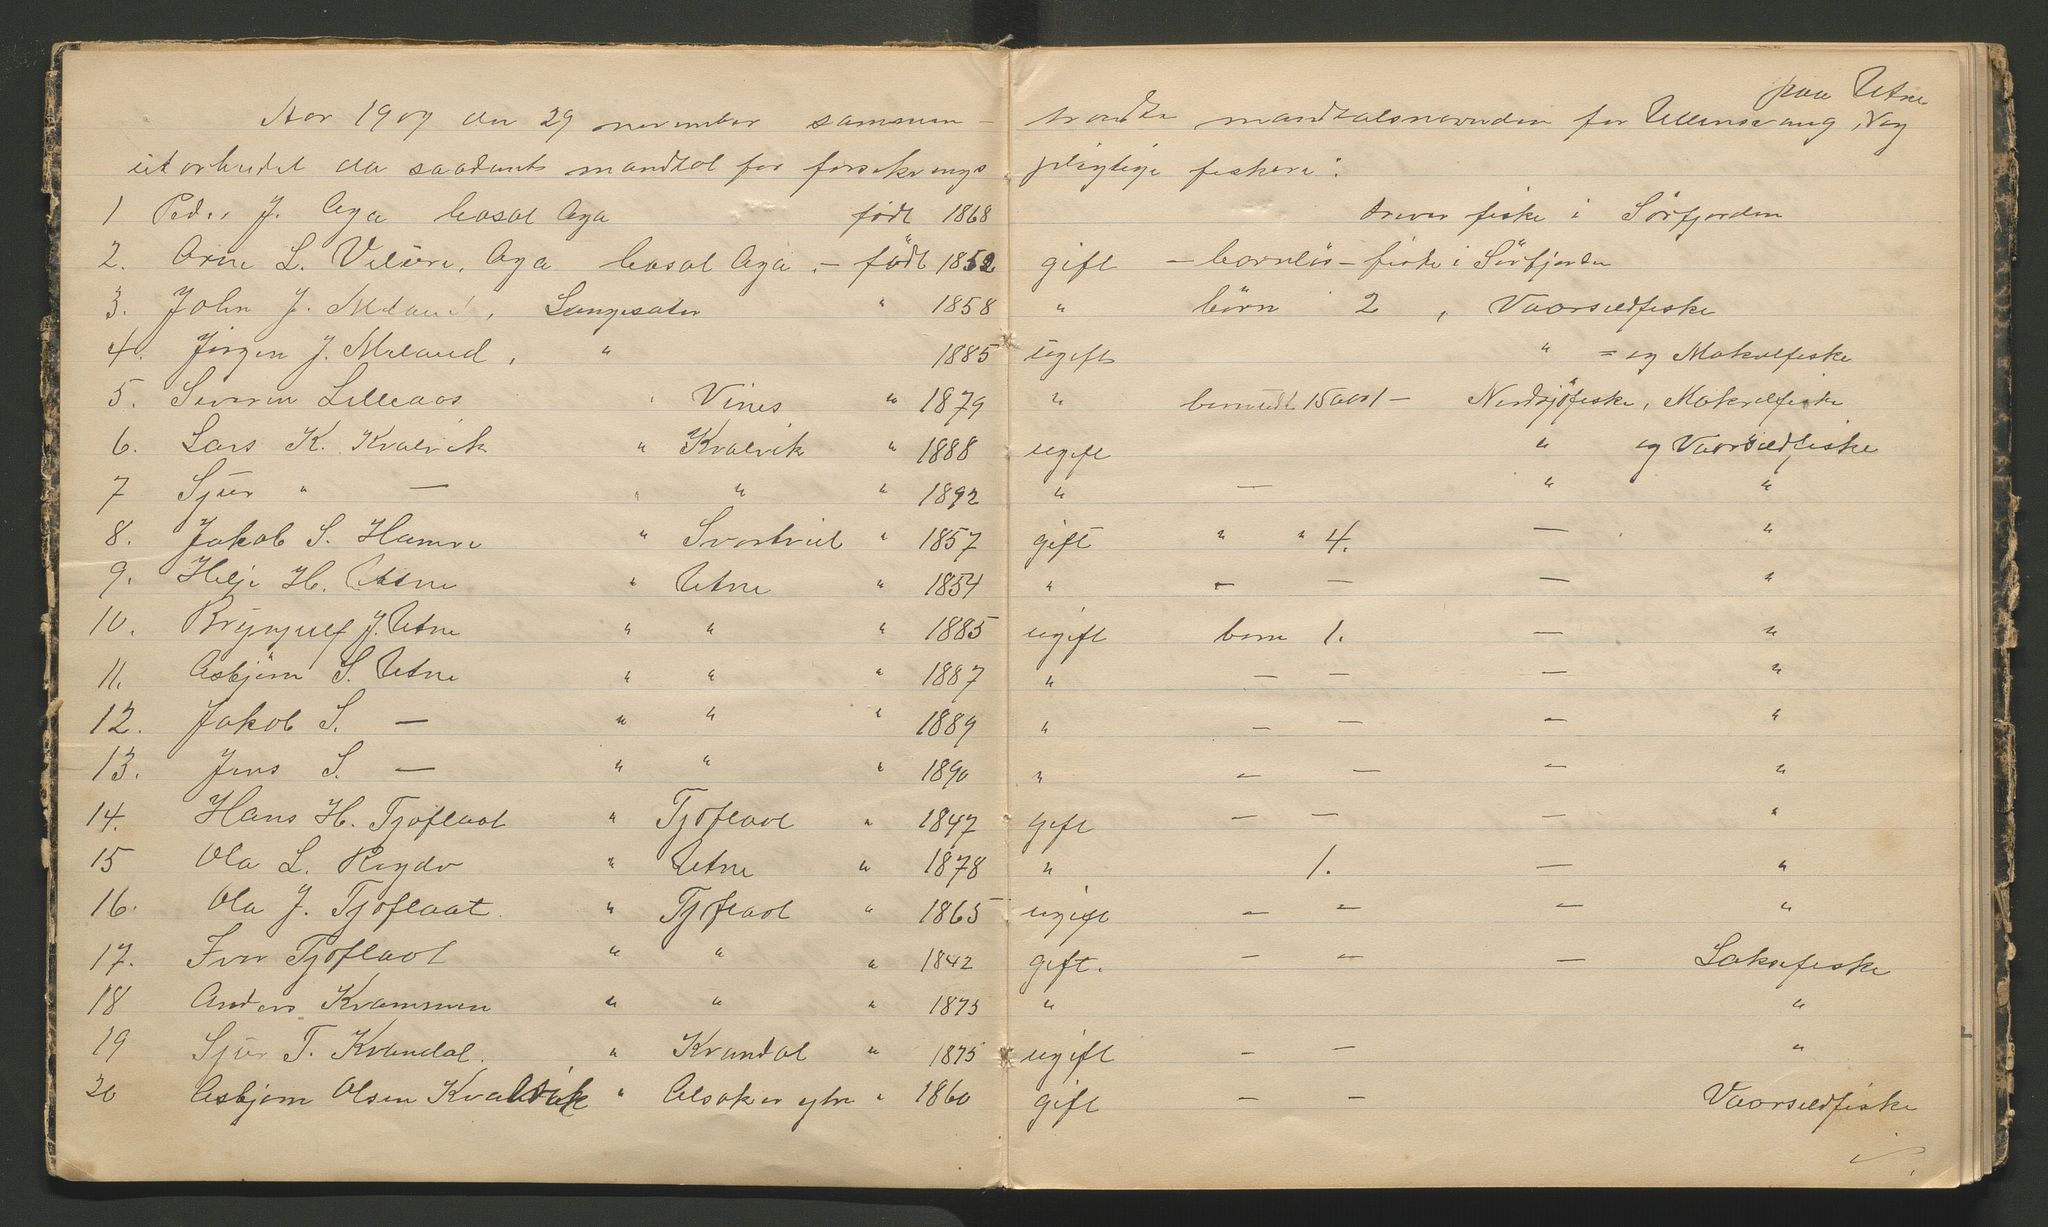 paa Utne
Aar 1909 den 29 november sammen- traadte mandtalsnevnden for Ullensvang, Vog
utarbeidet da saadant mandtal for forsikrings pligtige fiskere:
1 Peder J. Aga bosat Aga født 1868 driver fiske i Sørfjorden
2. Arne L. Aga bosat Aga, – født 1852 gift – barnløs – fiske i Sørfjorden
3. John J. Meland, Langesater " 1858 " børn 2, Vaarsildfiske
4. Jørgen J. Meland, " 1885 ugift " = og Makrelfiske
5. Severin Lilleaas Vines " 1879 " Nordsjøfiske, Makrelfiske
6. Lars K. Kvalvik " Kvalvik " 1888 ugift " og Vaarsildfiske
7 Sjur " — " " " 1892 " — " "
8. Jakob S. Hamre " Svartveit " 1857 gift " " 4. — "
9. Helje H. Utne " Utne " 1854 " – — — "
10. Brynjulf J. Utne " " " 1885 ugift barn 1. — "
11. Asbjørn S. Utne " " " 1887 " — — — "
12. Jakob S. — " " " 1889 " — — — "
13. Jens S. — " " " 1890 " — — — "
14. Hans H. Tjoflaat " Tjoflaat " 1847 gift — — — "
15 Ola L. " Utne " 1878 " 1. — "
16. Ola J. Tjoflaat. " Tjoflaat " 1865 ugift — — — "
17. Iver Tjoflaat " " " 1842 gift. — — — Laksefiske
18 Anders Kvammen " " " 1875 " "
19 Sjur T. Kvandal. " Kvandal " 1875 ugift — — "
20 Asbjørn Olsen Kvalvik " Alsaker ytre " 1860 gift — — Vaarsildfiske